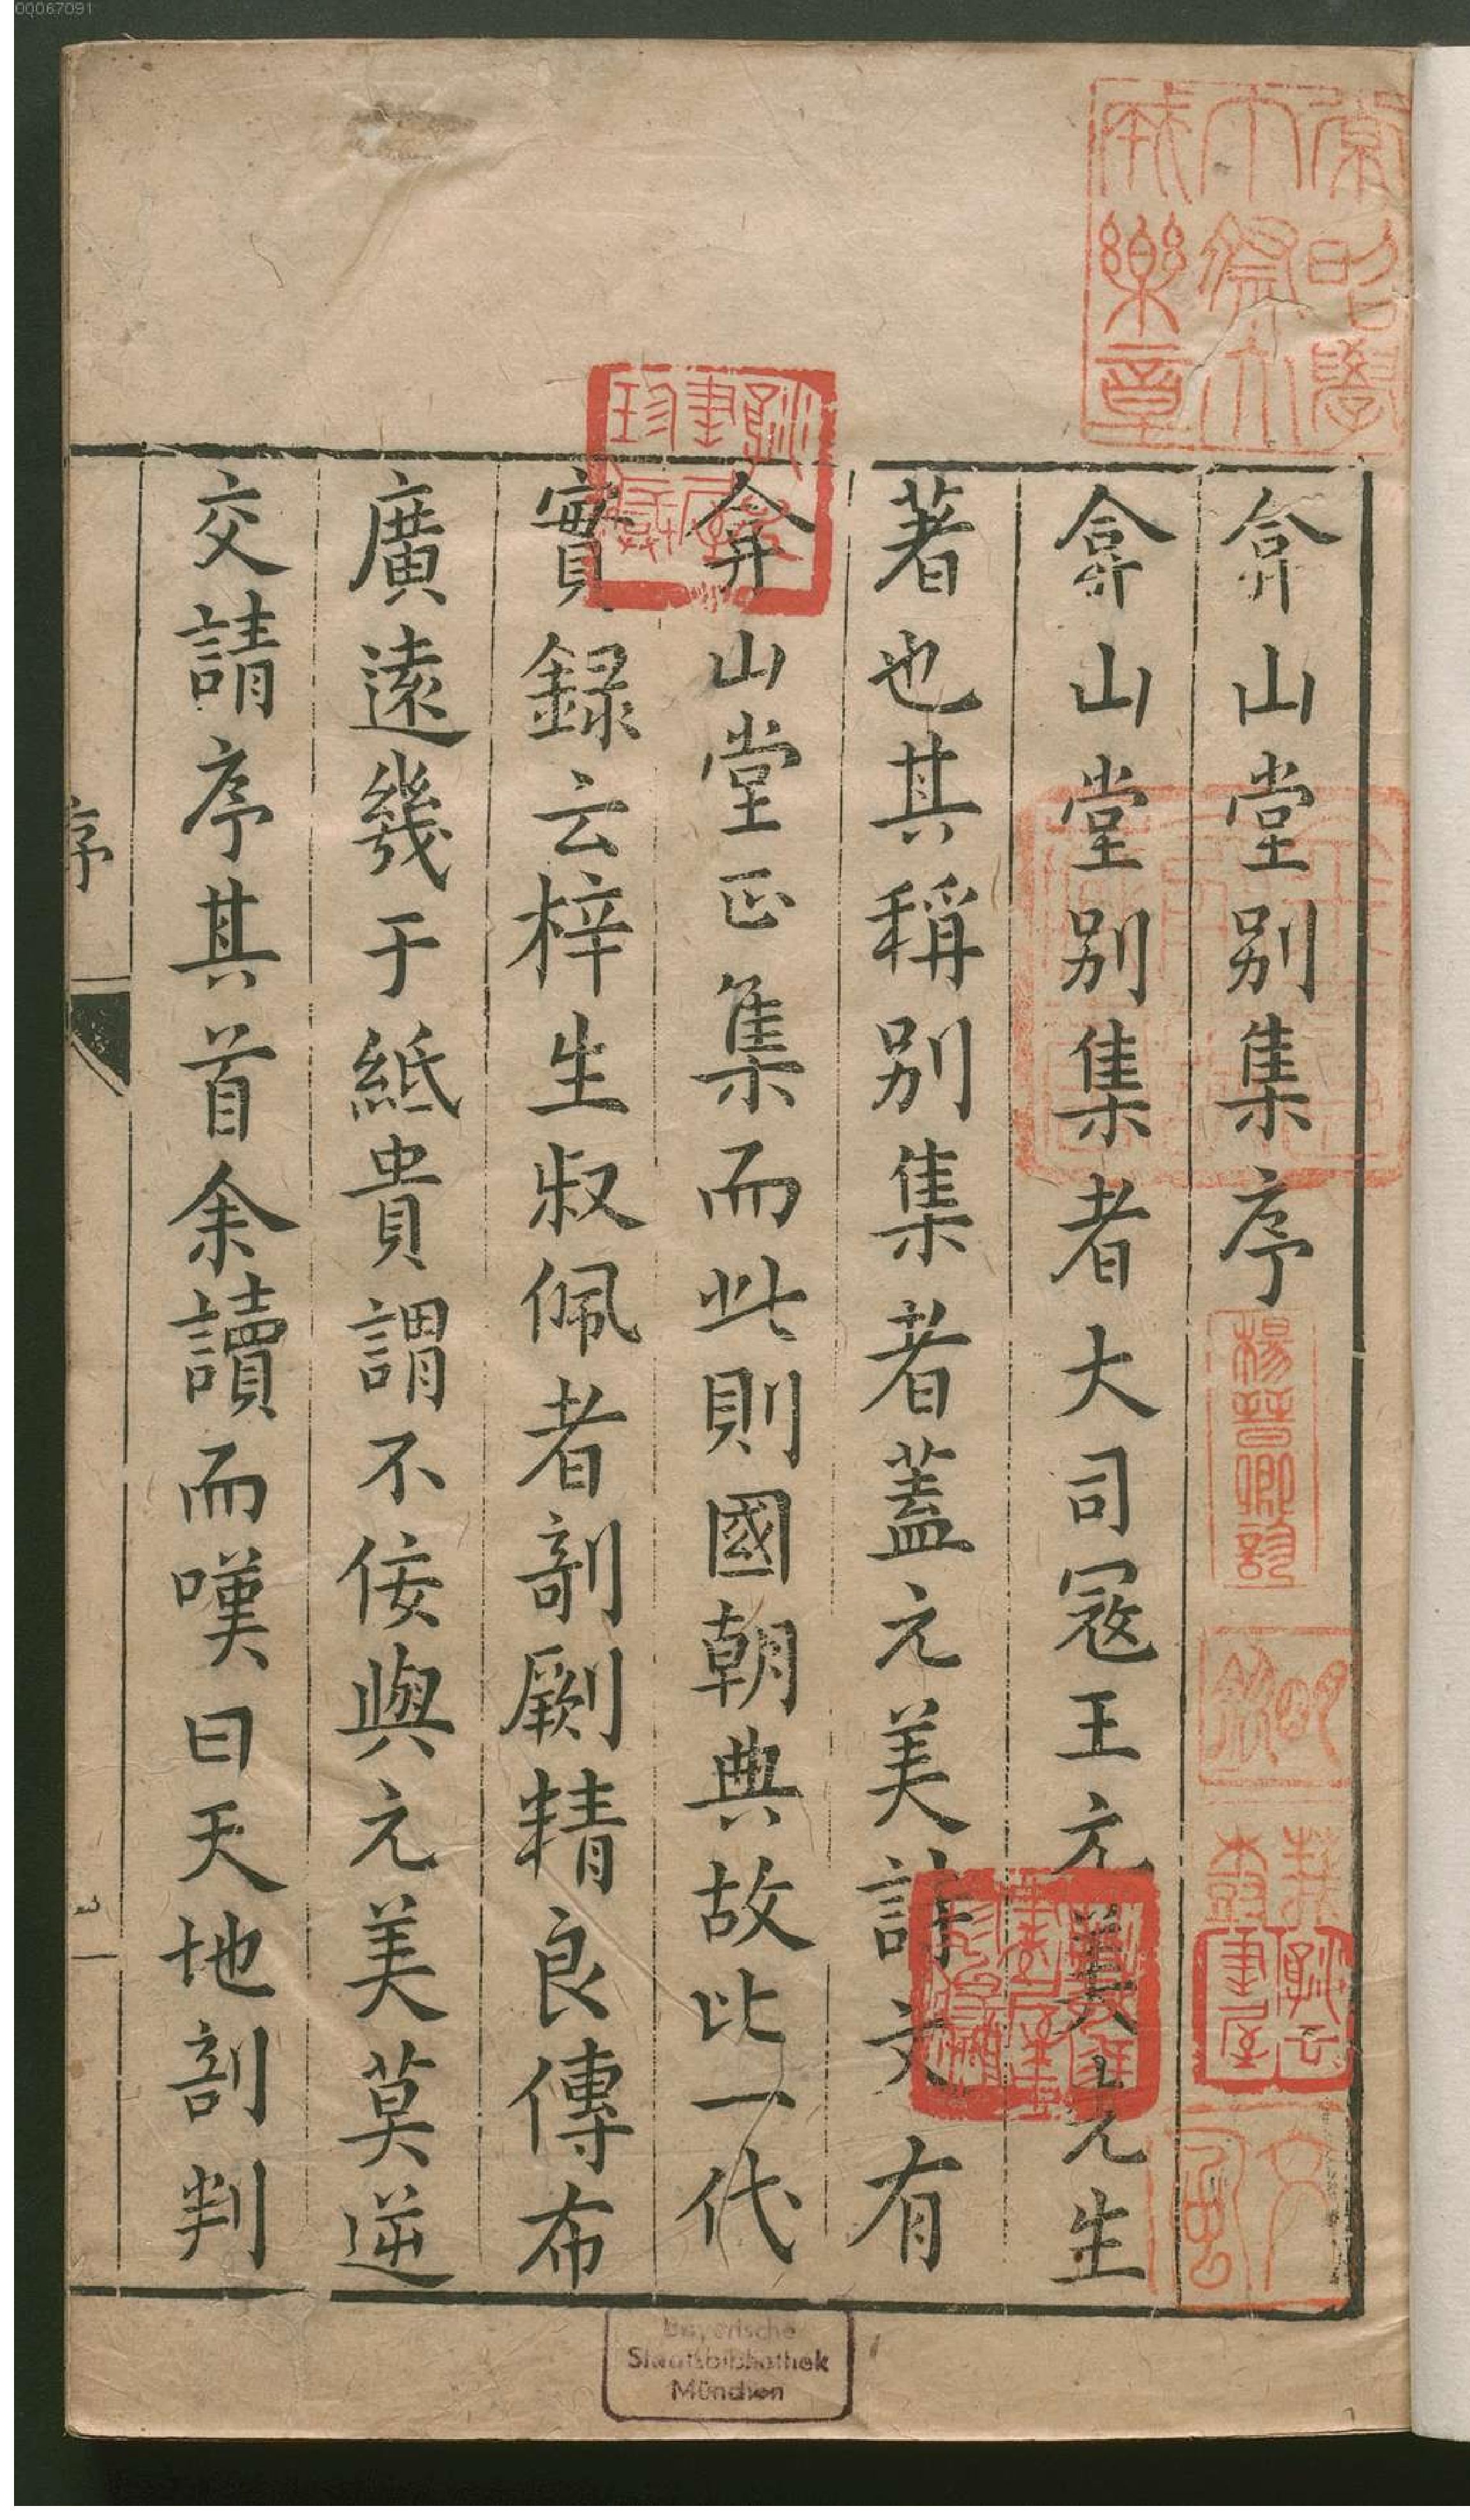 弇山堂别集序
弇山堂别集者大司寇王元美先生
著也其稱别集者蓋元美詩文有
弇山堂正集而此則國朝典故比一代
實録云梓生叔佩者剞劂精良傳布
廣遠幾于紙貴謂不佞與元美莫逆
交請序其首余讀而嘆曰天地剖判
序
Bayerische
Staatsbibliothek
München
00067091